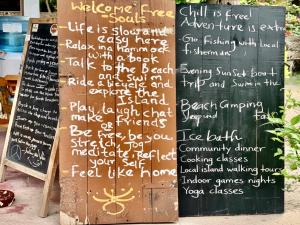 Welcome Free
Souls
-Life is slow and
easy here
Relax in a Hammock
with a book
-Talk to the Beach
and Swim
-Ride a bicycle and
explore the
Island
-Play, laugh, chat
make friends
OR
-Be free, be you
stretch, jog
meditate, Reflect
your self
-Feel like home
Chill is free!
Adventure is extra
Go fishing with Local
fisherman
Evening Sunset boat
trip and Swim in the
Beach Camping
Ice bath
Community dinner
Cooking classes
Local island walking tours
Indoor games nights
Yoga classes